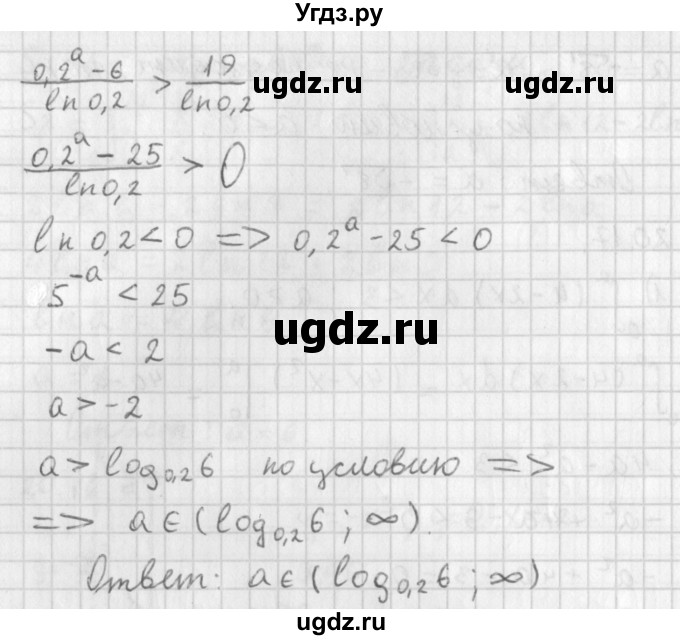 Угдз.ру
(0,2^a - 6)/(ln 0,2) > 19/(ln 0,2)
ugdz.ru ugdz.ru
(0,2^a - 25)/(ln 0,2) > 0
ln 0,2 < 0 => 0,2^a - 25 < 0
5^(-a) < 25
ugdz.ru
-a < 2
a > -2
a > log_0,2 6 по условию =>
=> a ∈ (log_0,2 6 ; ∞).
Ответ: a ∈ (log_0,2 6 ; ∞)
ugdz.ru ugdz.ru